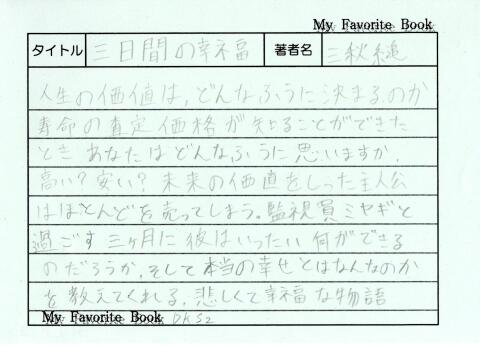 My Favorite Book
タイトル 三日間の幸福 著者名 三秋縋
人生の価値は、どんなふうに決まるのか
寿命の査定価格が知ることができた
ときあなたはどんなふうに思いますか。
高い？安い？未来の価値をしった主人公
はほとんどを売ってしまう。監視員ミヤギと
過ごす三ヶ月に彼はいったい何ができる
のだろうか。そして本当の幸せとはなんなのか
を教えてくれる、悲しくて幸福な物語
My Favorite Book DKS2